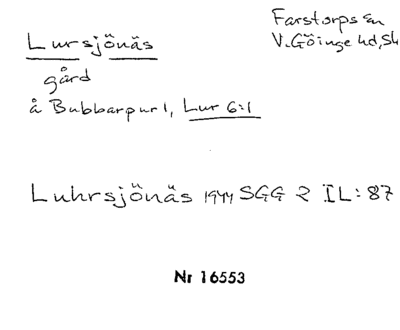 Lursjönäs
Farstorps sn
V. Göinge hd, Sk
gård
å Bubbarpur 1, Lur 6:1
Luhrsjönäs 1944 SGG 2 IL: 87
Nr 16553